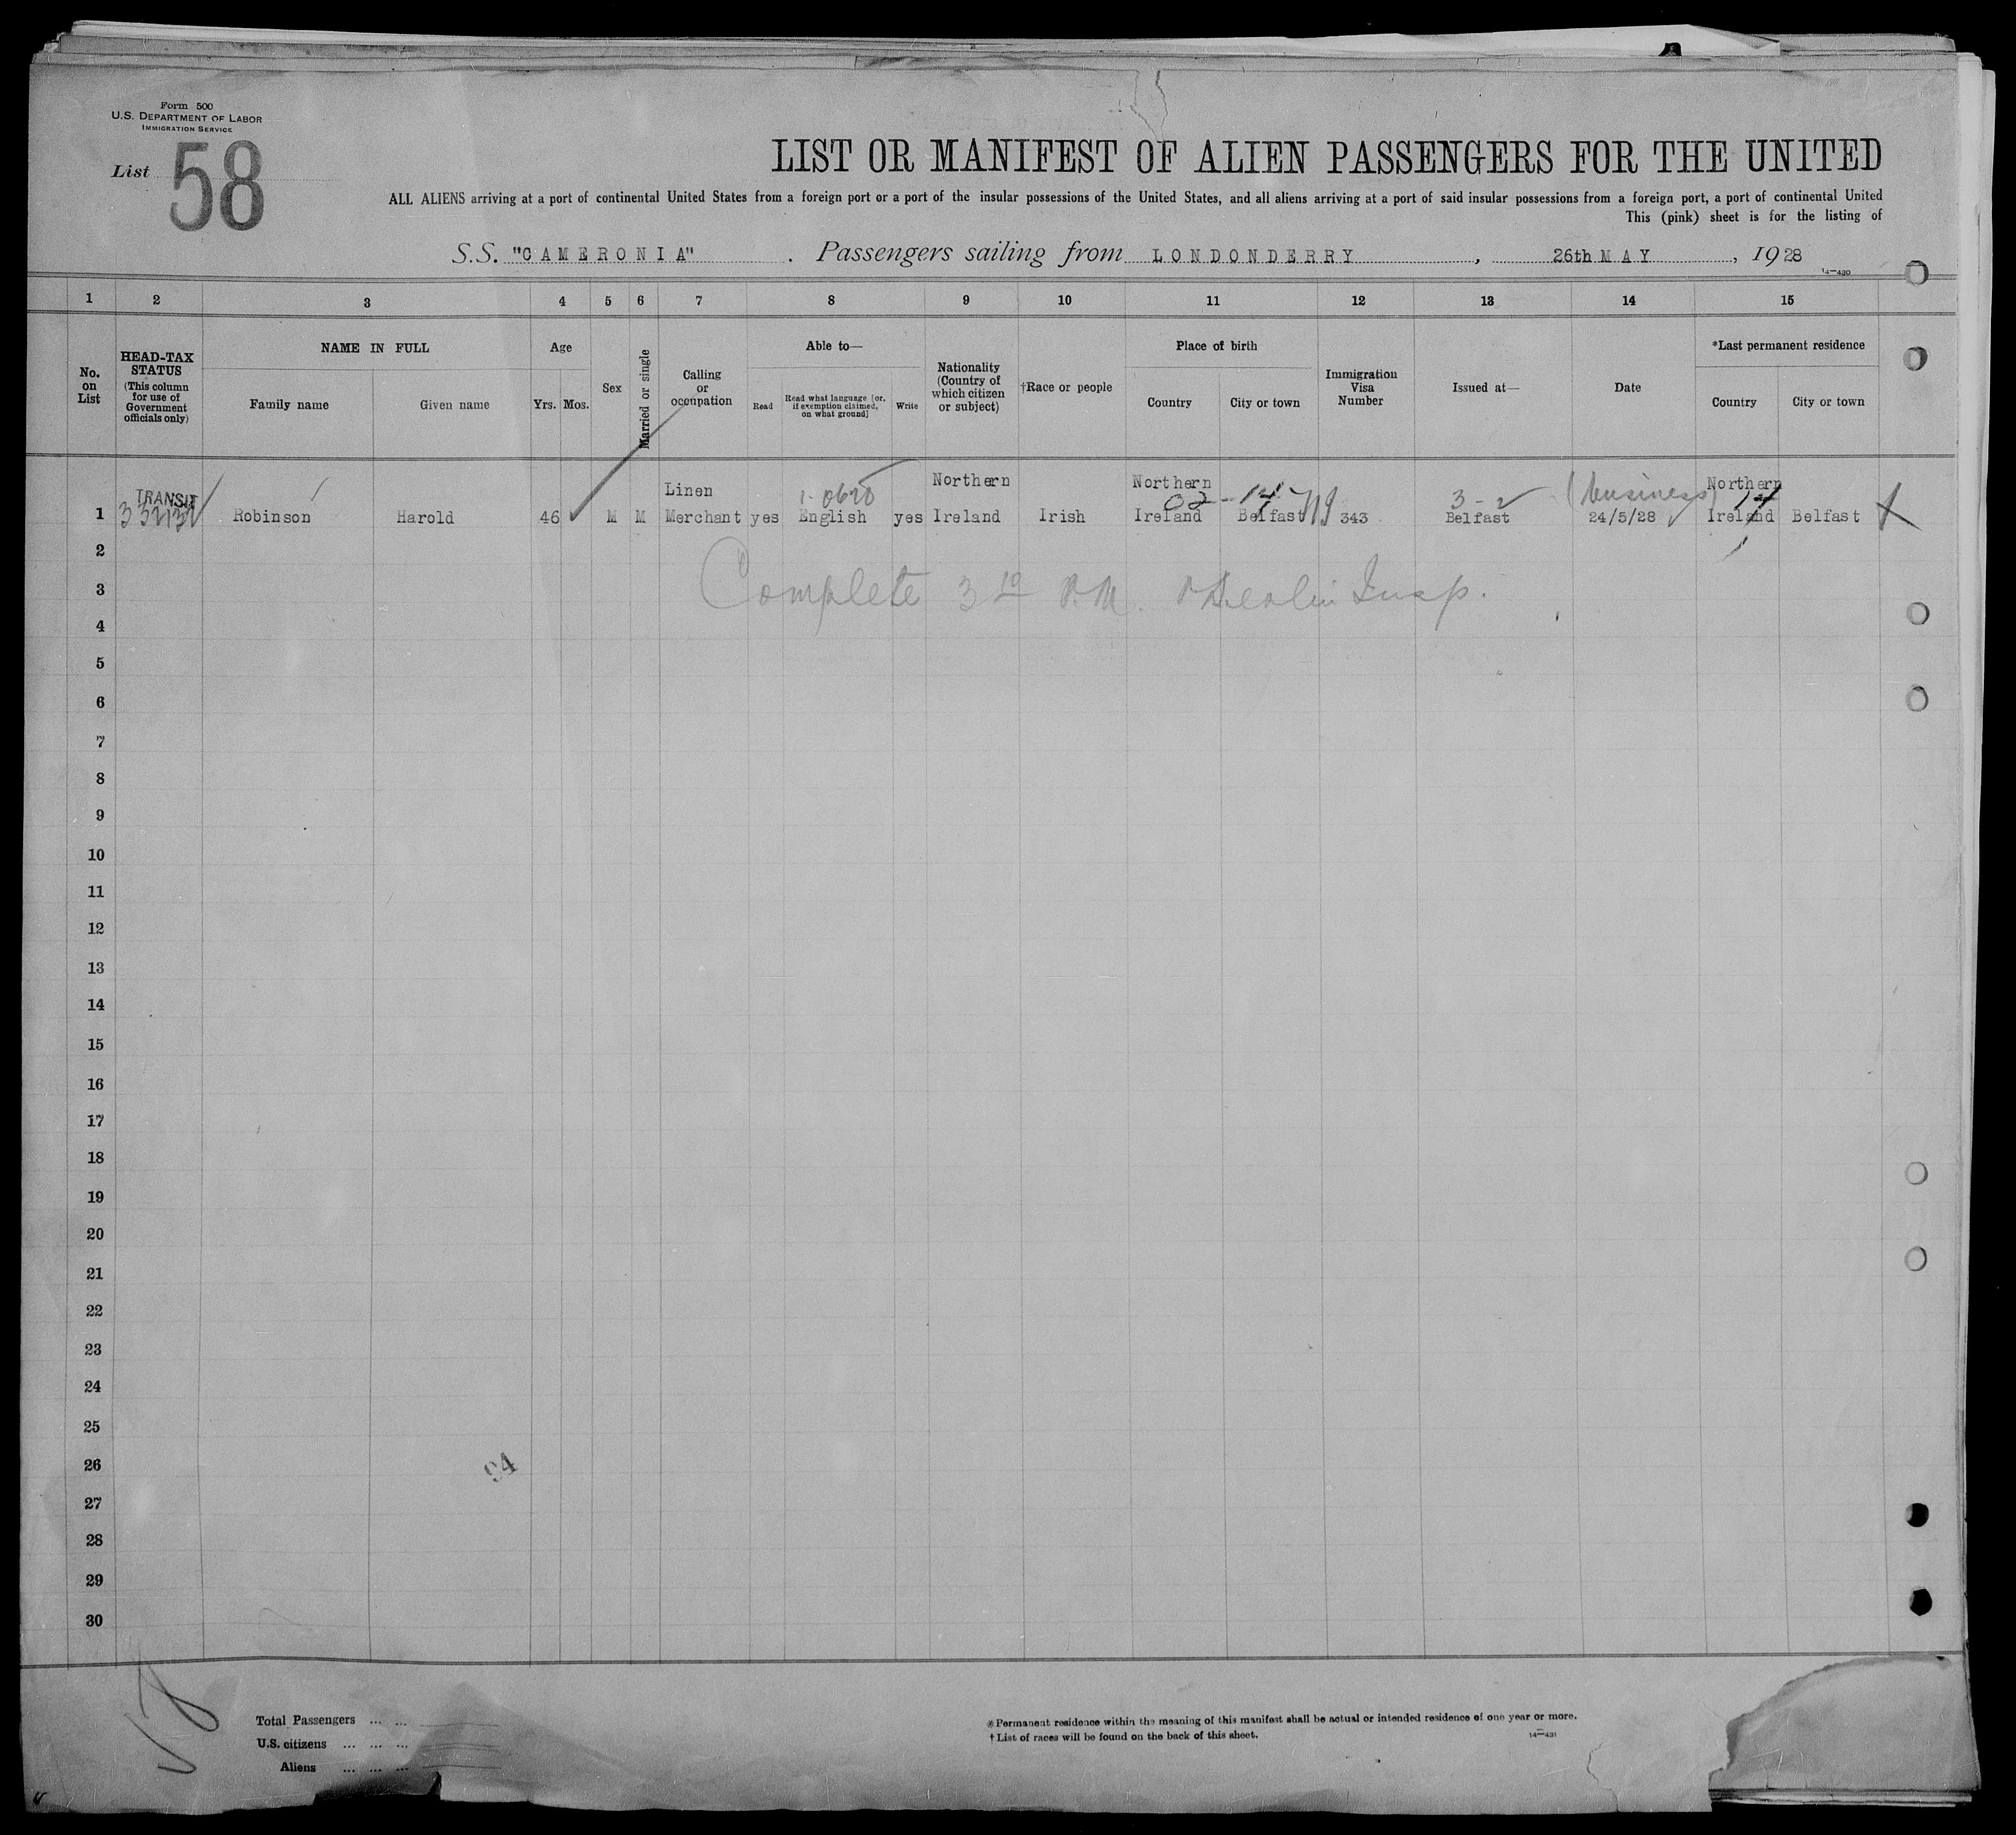 Form 500
U.S. DEPARTMENT OF LABOR
IMMIGRATION SERVICE
List 58
LIST OR MANIFEST OF ALIEN PASSENGERS FOR THE UNITED
ALL ALIENS arriving at a port of continental United States from a foreign port or a port of the insular possessions of the United States, and all aliens arriving at a port of said insular possessions from a foreign port, a port of continental United
This (pink) sheet is for the listing of
S.S. "CAMERONIA". Passengers sailing from LONDONDERRY, 26th MAY, 1928
14—430
1 2 3 4 5 6 7 8 9 10 11 12 13 14 15
No. on List
HEAD-TAX STATUS
(This column for use of Government officials only)
NAME IN FULL
Family name Given name
Age
Yrs. Mos.
Sex
Married or single
Calling or occupation
Able to—
Read
Read what language [or, if exemption claimed, on what ground]
Write
Nationality (Country of which citizen or subject)
†Race or people
Place of birth
Country City or town
Immigration Visa Number
Issued at—
Date
*Last permanent residence
Country City or town
TRANSIT Linen Northern Northern 02-14 3-2 (business) Northern 14
1 Robinson Harold 46 M M Merchant yes English yes Ireland Irish Ireland Belfast 343 Belfast 24/5/28 Ireland Belfast
2
Complete 3 10 P.M. Insp.
3
4
5
6
7
8
9
10
11
12
13
14
15
16
17
18
19
20
21
22
23
24
25
26
94
27
28
29
30
Total Passengers ... ...
U.S. citizens ... ... ...
Aliens ... ... ...
*Permanent residence within the meaning of this manifest shall be actual or intended residence of one year or more.
†List of races will be found on the back of this sheet.
14—431